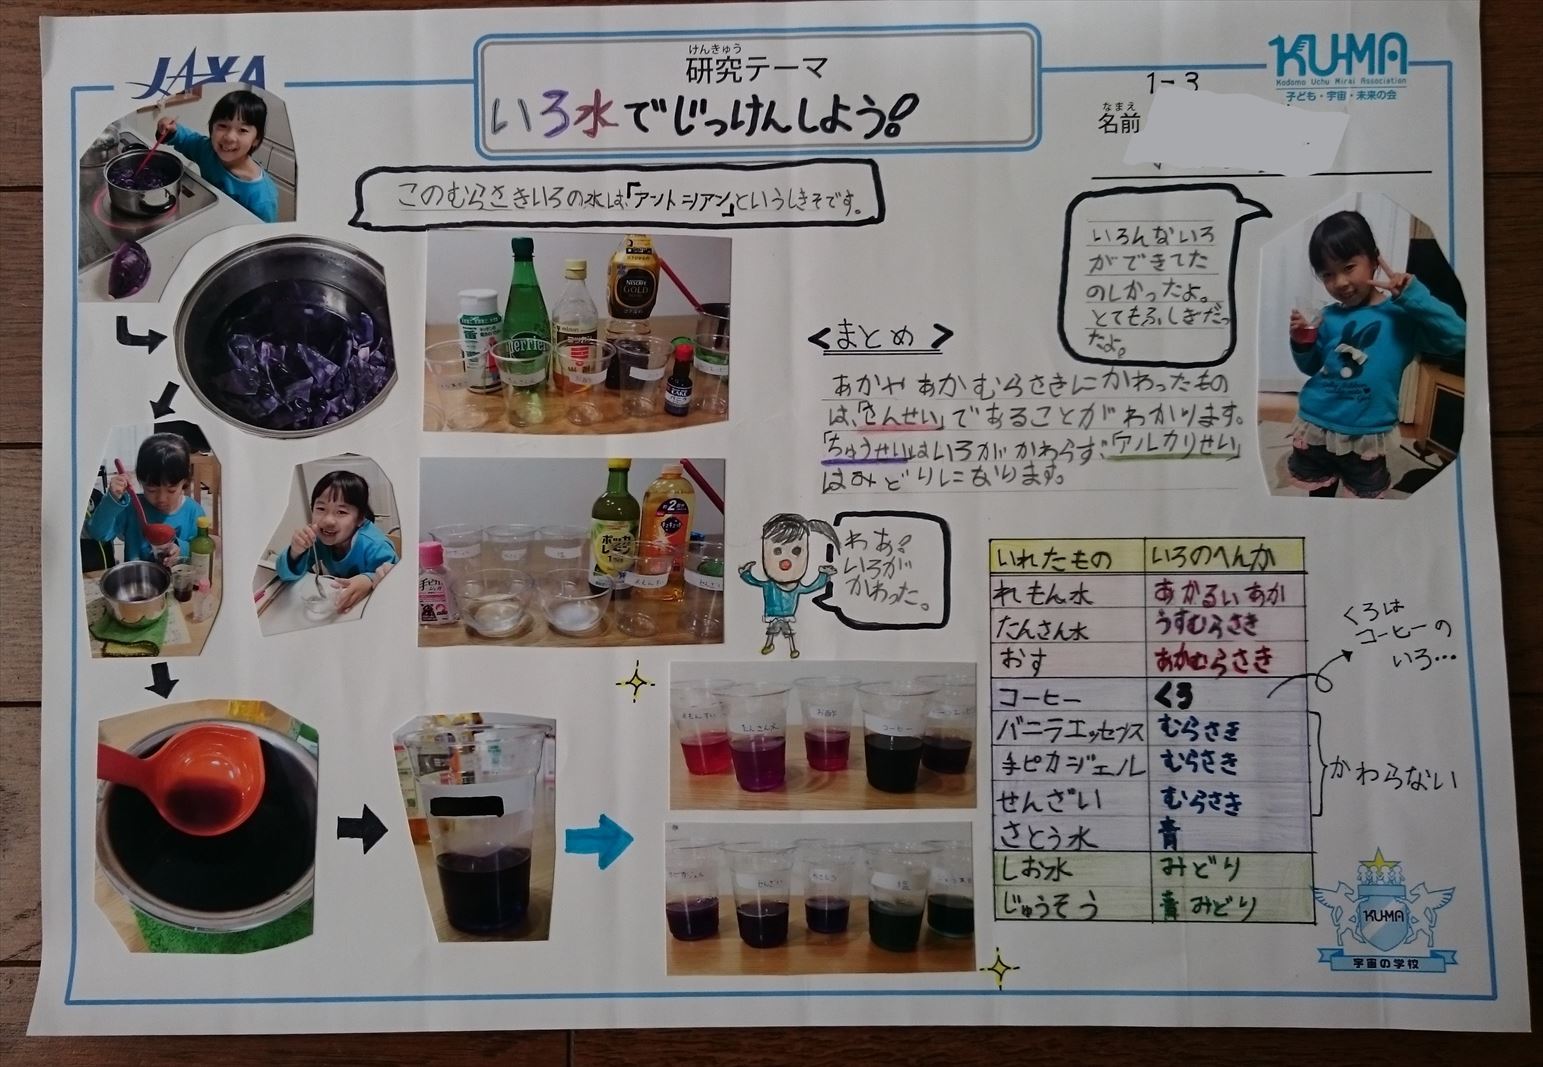 JAXA
けんきゅう
研究テーマ
いろ水でじっけんしよう!
KU-MA
Kodomo Uchu Mirai Association
子ども・宇宙・未来の会
1-3
なまえ
名前
このむらさきいろの水は「アントシアン」というしきそです。
いろんないろ
ができてた
のしかったよ。
とてもふしぎだっ
たよ。
perrier
NESCAFE
GOLD
<まとめ>
あかや あかむらさきにかわったもの
は、「さんせい」であることがわかります。
「ちゅうせい」はいろがかわらず、「アルカリせい」
はみどりになります。
ポッカ
レモン
手ピカ
わあ!
いろが
かわった。
いれたもの いろのへんか
れもん水 あかるいあか
たんさん水 うすむらさき
おす あかむらさき
コーヒー くろ
バニラエッセンス むらさき
手ピカジェル むらさき
せんざい むらさき
さとう水 青
しお水 みどり
じゅうそう 青みどり
くろは
コーヒーの
いろ…
かわらない
れもんすい
たんさん水
お酢
コーヒー
せんざい
KU-MA
宇宙の学校